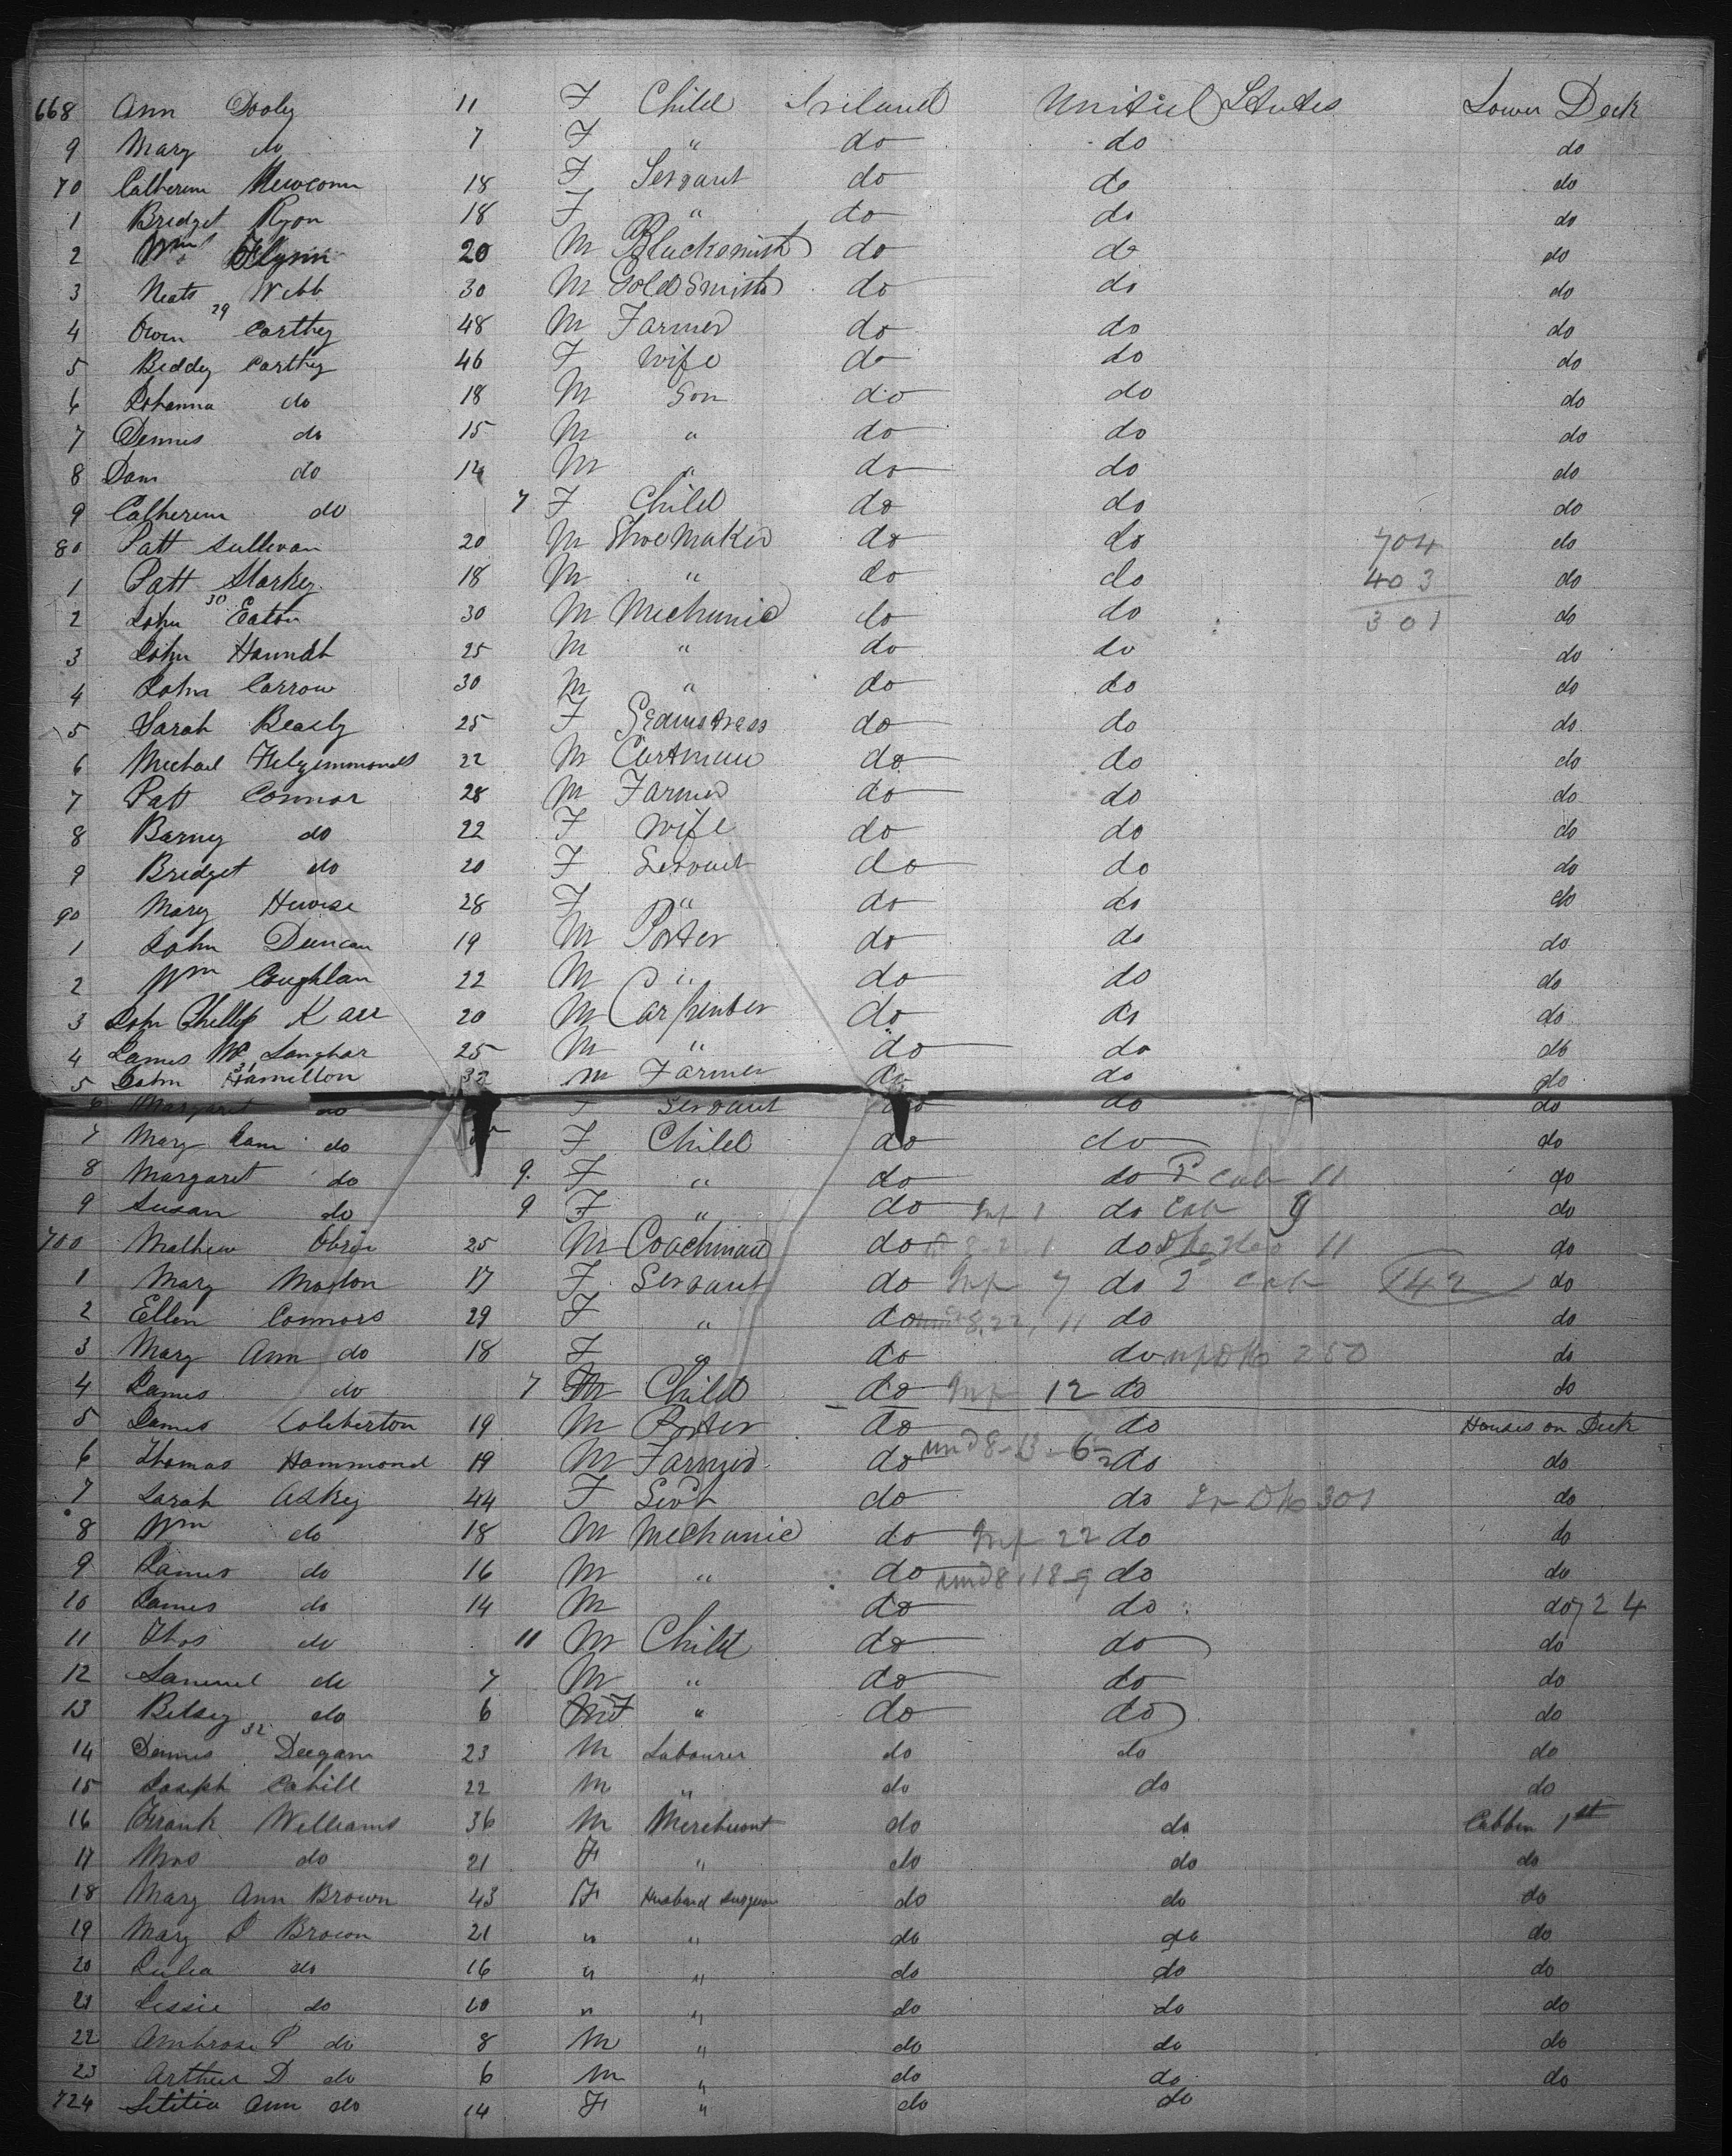 668 Ann Dooly 11 F Child Ireland United States Lower Deck
9 Mary do 7 F " do do do
70 Catherine Newcomn 18 F Servant do do do
1 Bridget Ryon 18 F " do do do
2 Wm Flynn 20 M Blacksmith do do do
3 Neats Webb 30 M Gold Smith do do do
29
4 Owen Carthy 48 M Farmer do do do
5 Biddy Carthy 46 F Wife do do do
6 Johanna do 18 M Son do do do
7 Dennis do 15 M " do do do
8 Dan do 14 M " do do do
9 Catherine do 7 F Child do do do
80 Patt Sullivan 20 M Shoe Maker do do 704 do
1 Patt Starkey 18 M " do do 403 do
30
2 John Eaton 30 M Mechanic do do 301 do
3 John Hannah 25 M " do do do
4 John Carrow 30 M " do do do
5 Sarah Beasly 25 F Seamstress do do do
6 Michael Fitzsimmonds 22 M Cartman do do do
7 Patt Connor 28 M Farmer do do do
8 Barney do 22 F Wife do do do
9 Bridget do 20 F Servant do do do
90 Mary Hewise 28 F " do do do
1 John Duncan 19 M Porter do do do
2 Wm Coughlan 22 M " do do do
3 John Phillip Karr 20 M Carpenter do do do
4 James Mc Langhar 25 M " do do do
31
5 John Hamilton 32 M Farmer do do do
6 Margaret do F Servant do do do
7 Mary Jane do F Child do do do
8 Margaret do 9 F " do do Cab 11 do
9 Susan do 9 F " do Inf 1 do Cab 9 do
700 Mathew Obrien 25 M Coachman do do 11 do
1 Mary Morton 17 F Servant do Inf 7 do 2 Cab 142 do
2 Ellen Connors 29 F " do und 8, 22, 11 do do
3 Mary Ann do 18 F " do do 250 do
4 James do 7 M Child do Inf 12 do do
5 James Colcherton 19 M Porter do do Houses on Deck
6 Thomas Hammond 19 M Farmer do und 8-13-6 do do
7 Sarah Askey 44 F Servt do do 301 do
8 Wm do 18 M Mechanic do Inf 22 do do
9 James do 16 M " do und 8, 18-9 do do
10 James do 14 M do do do 724
11 Thos do 11 M Child do do do
12 Samuel do 7 M " do do do
13 Betsey do 6 F " do do do
32
14 Dennis Deegan 23 M Labourer do do do
15 Joseph Cahill 22 M " do do do
16 Frank Williams 36 M Merchant do do Cabbin 1st
17 Mrs do 21 F " do do do
18 Mary Ann Brown 43 F Husband Surgeon do do do
19 Mary D Brown 21 " " do do do
20 Julia do 16 " " do do do
21 Jessie do 10 " " do do do
22 Ambrose P do 8 M " do do do
23 Arthur D do 6 M " do do do
724 Letitia Ann do 14 F " do do